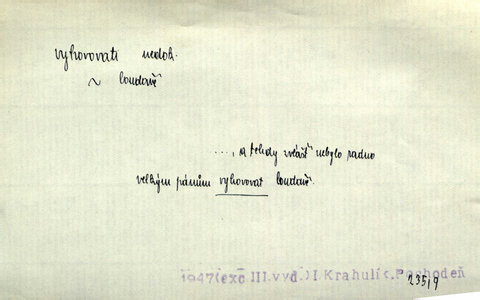 vyhovovati nedok.
~ loudavě
..., a tehdy zvlášť nebylo radno
velkým pánům vyhovovat loudavě.
1947(exc III.vyd.) I Krahulíc.Pochodeň 235,9